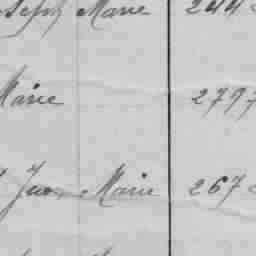 Joseph Marie 244
Marie 2797
Jean Marie 267